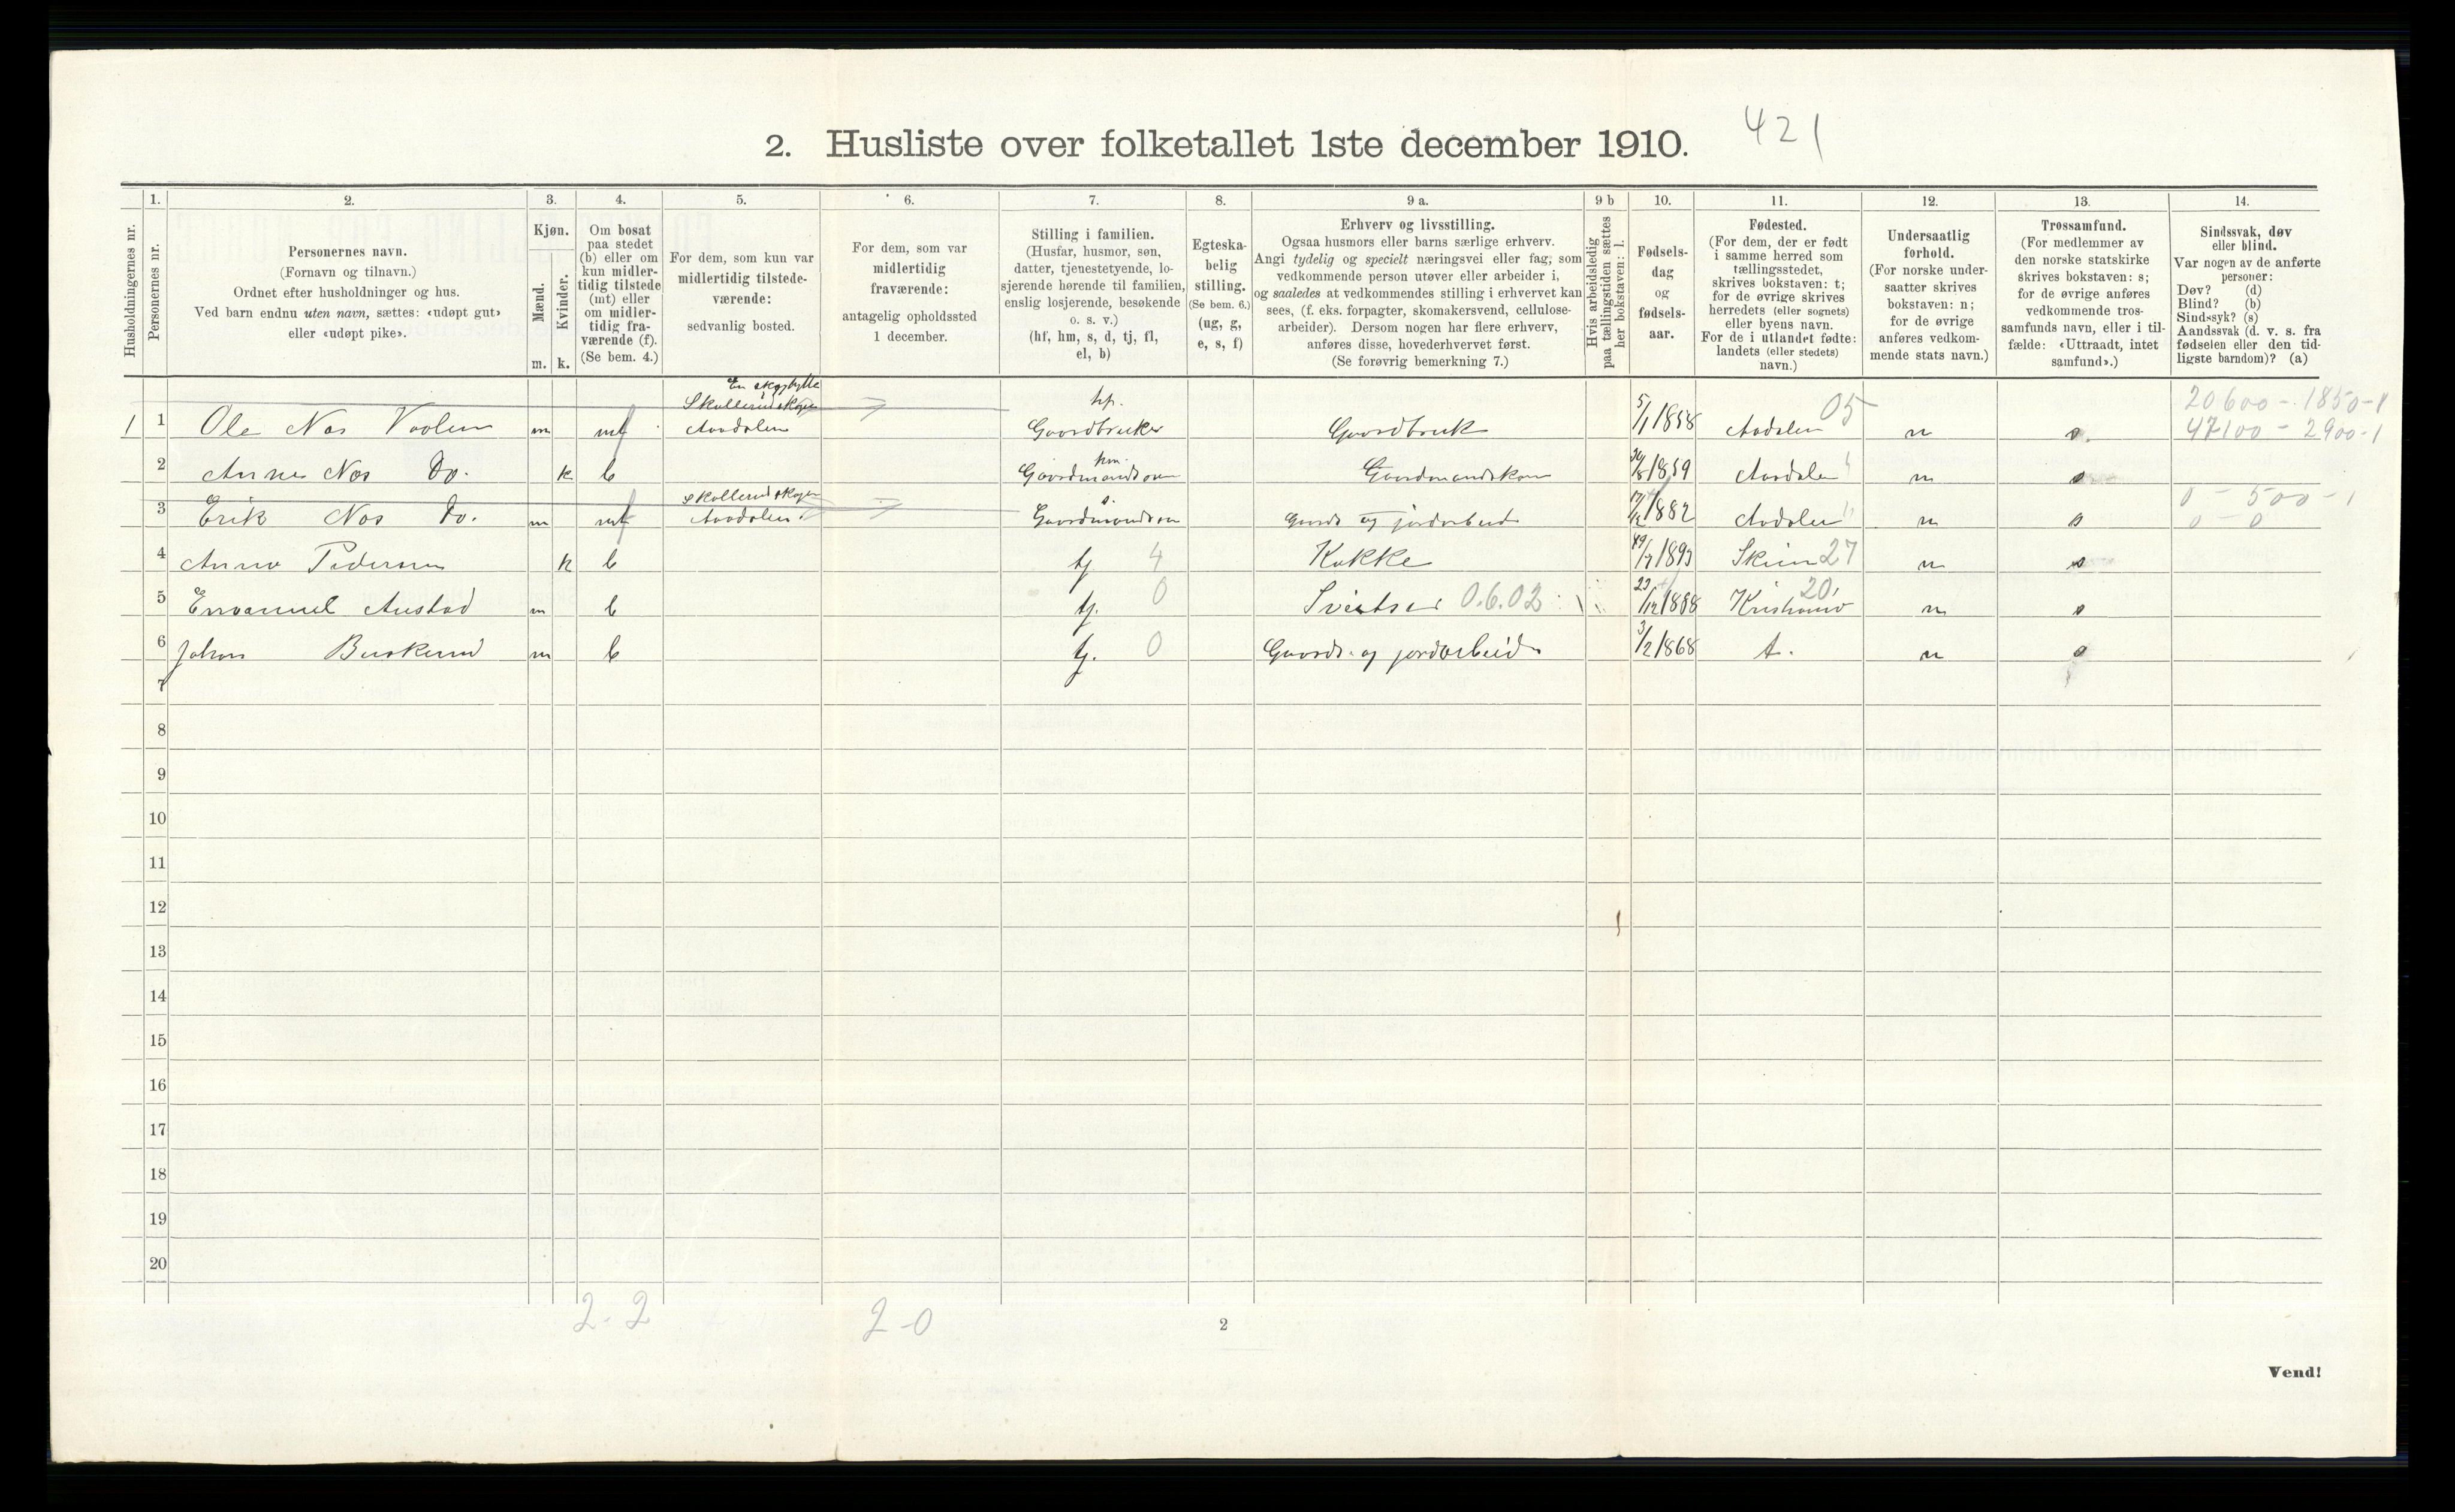 421
2. Husliste over folketallet 1ste december 1910.
Husholdningernes nr.
1.
Personernes nr.
2.
Personernes navn.
(Fornavn og tilnavn.)
Ordnet efter husholdninger og hus.
Ved barn endnu uten navn, sættes: «udøpt gut»
eller «udøpt pike».
3.
Kjøn.
Mænd.
Kvinder.
m. k.
4.
Om bosat
paa stedet
(b) eller om
kun midler-
tidig tilstede
(mt) eller
om midler-
tidig fra-
værende (f).
(Se bem. 4.)
5.
For dem, som kun var
midlertidig tilstede-
værende:
sedvanlig bosted.
6.
For dem, som var
midlertidig
fraværende:
antagelig opholdssted
1 december.
7.
Stilling i familien.
(Husfar, husmor, søn,
datter, tjenestetyende, lo-
sjerende hørende til familien,
enslig losjerende, besøkende
o. s. v.)
(hf, hm, s, d, tj, fl,
el, b)
8.
Egteska-
belig
stilling.
(Se bem. 6.)
(ug, g,
e, s, f)
9 a.
Erhverv og livsstilling.
Ogsaa husmors eller barns særlige erhverv.
Angi tydelig og specielt næringsvei eller fag, som
vedkommende person utøver eller arbeider i,
og saaledes at vedkommendes stilling i erhvervet kan
sees, (f. eks. forpagter, skomakersvend, cellulose-
arbeider). Dersom nogen har flere erhverv,
anføres disse, hovederhvervet først.
(Se forøvrig bemerkning 7.)
9 b
Hvis arbeidsledig
paa tællingstiden sættes
her bokstaven: l.
10.
Fødsels-
dag
og
fødsels-
aar.
11.
Fødested.
(For dem, der er født
i samme herred som
tællingsstedet,
skrives bokstaven: t;
for de øvrige skrives
herredets (eller sognets)
eller byens navn.
For de i utlandet fødte:
landets (eller stedets)
navn.)
12.
Undersaatlig
forhold.
(For norske under-
saatter skrives
bokstaven: n;
for de øvrige
anføres vedkom-
mende stats navn.)
13.
Trossamfund.
(For medlemmer av
den norske statskirke
skrives bokstaven: s;
for de øvrige anføres
vedkommende tros-
samfunds navn, eller i til-
fælde: «Uttraadt, intet
samfund».)
14.
Sindssvak, døv
eller blind.
Var nogen av de anførte
personer:
Døv? (d)
Blind? (b)
Sindssyk? (s)
Aandssvak (d. v. s. fra
fødselen eller den tid-
ligste barndom)? (a)
Skollerudskogen hf. 20600 - 1850-1
1 1 Ole Nas m mt Aadalen Gaardbruker Gaardbruk 5/1 1858 Aadalen 05 n s. 47100 - 2900-1
hm.
2 Anne Nas Do. k b 1859 Aadalen n s
Skollerudskogen s. 0 - 500 - 1
3 Erik Nas Do. m mt Aadalen 1882 Aadalen n s 0 - 0
4 Anna Pedersen k b tj 4 Kokke 27 n s
5 Emanuel Austad m b tj. 0 0.6.02 /12 1888 20, n s
6 Johan Buskerud m b tj. 0 Gaards- og jordarbeide 3/2 1868 t. n s
7
8
9
10
11
12
13
14
15
16
17
18
19
20
2-2 2-0
2
Vend!